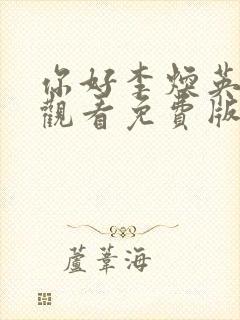 你好李煥英
觀看免費版
蘆葦海